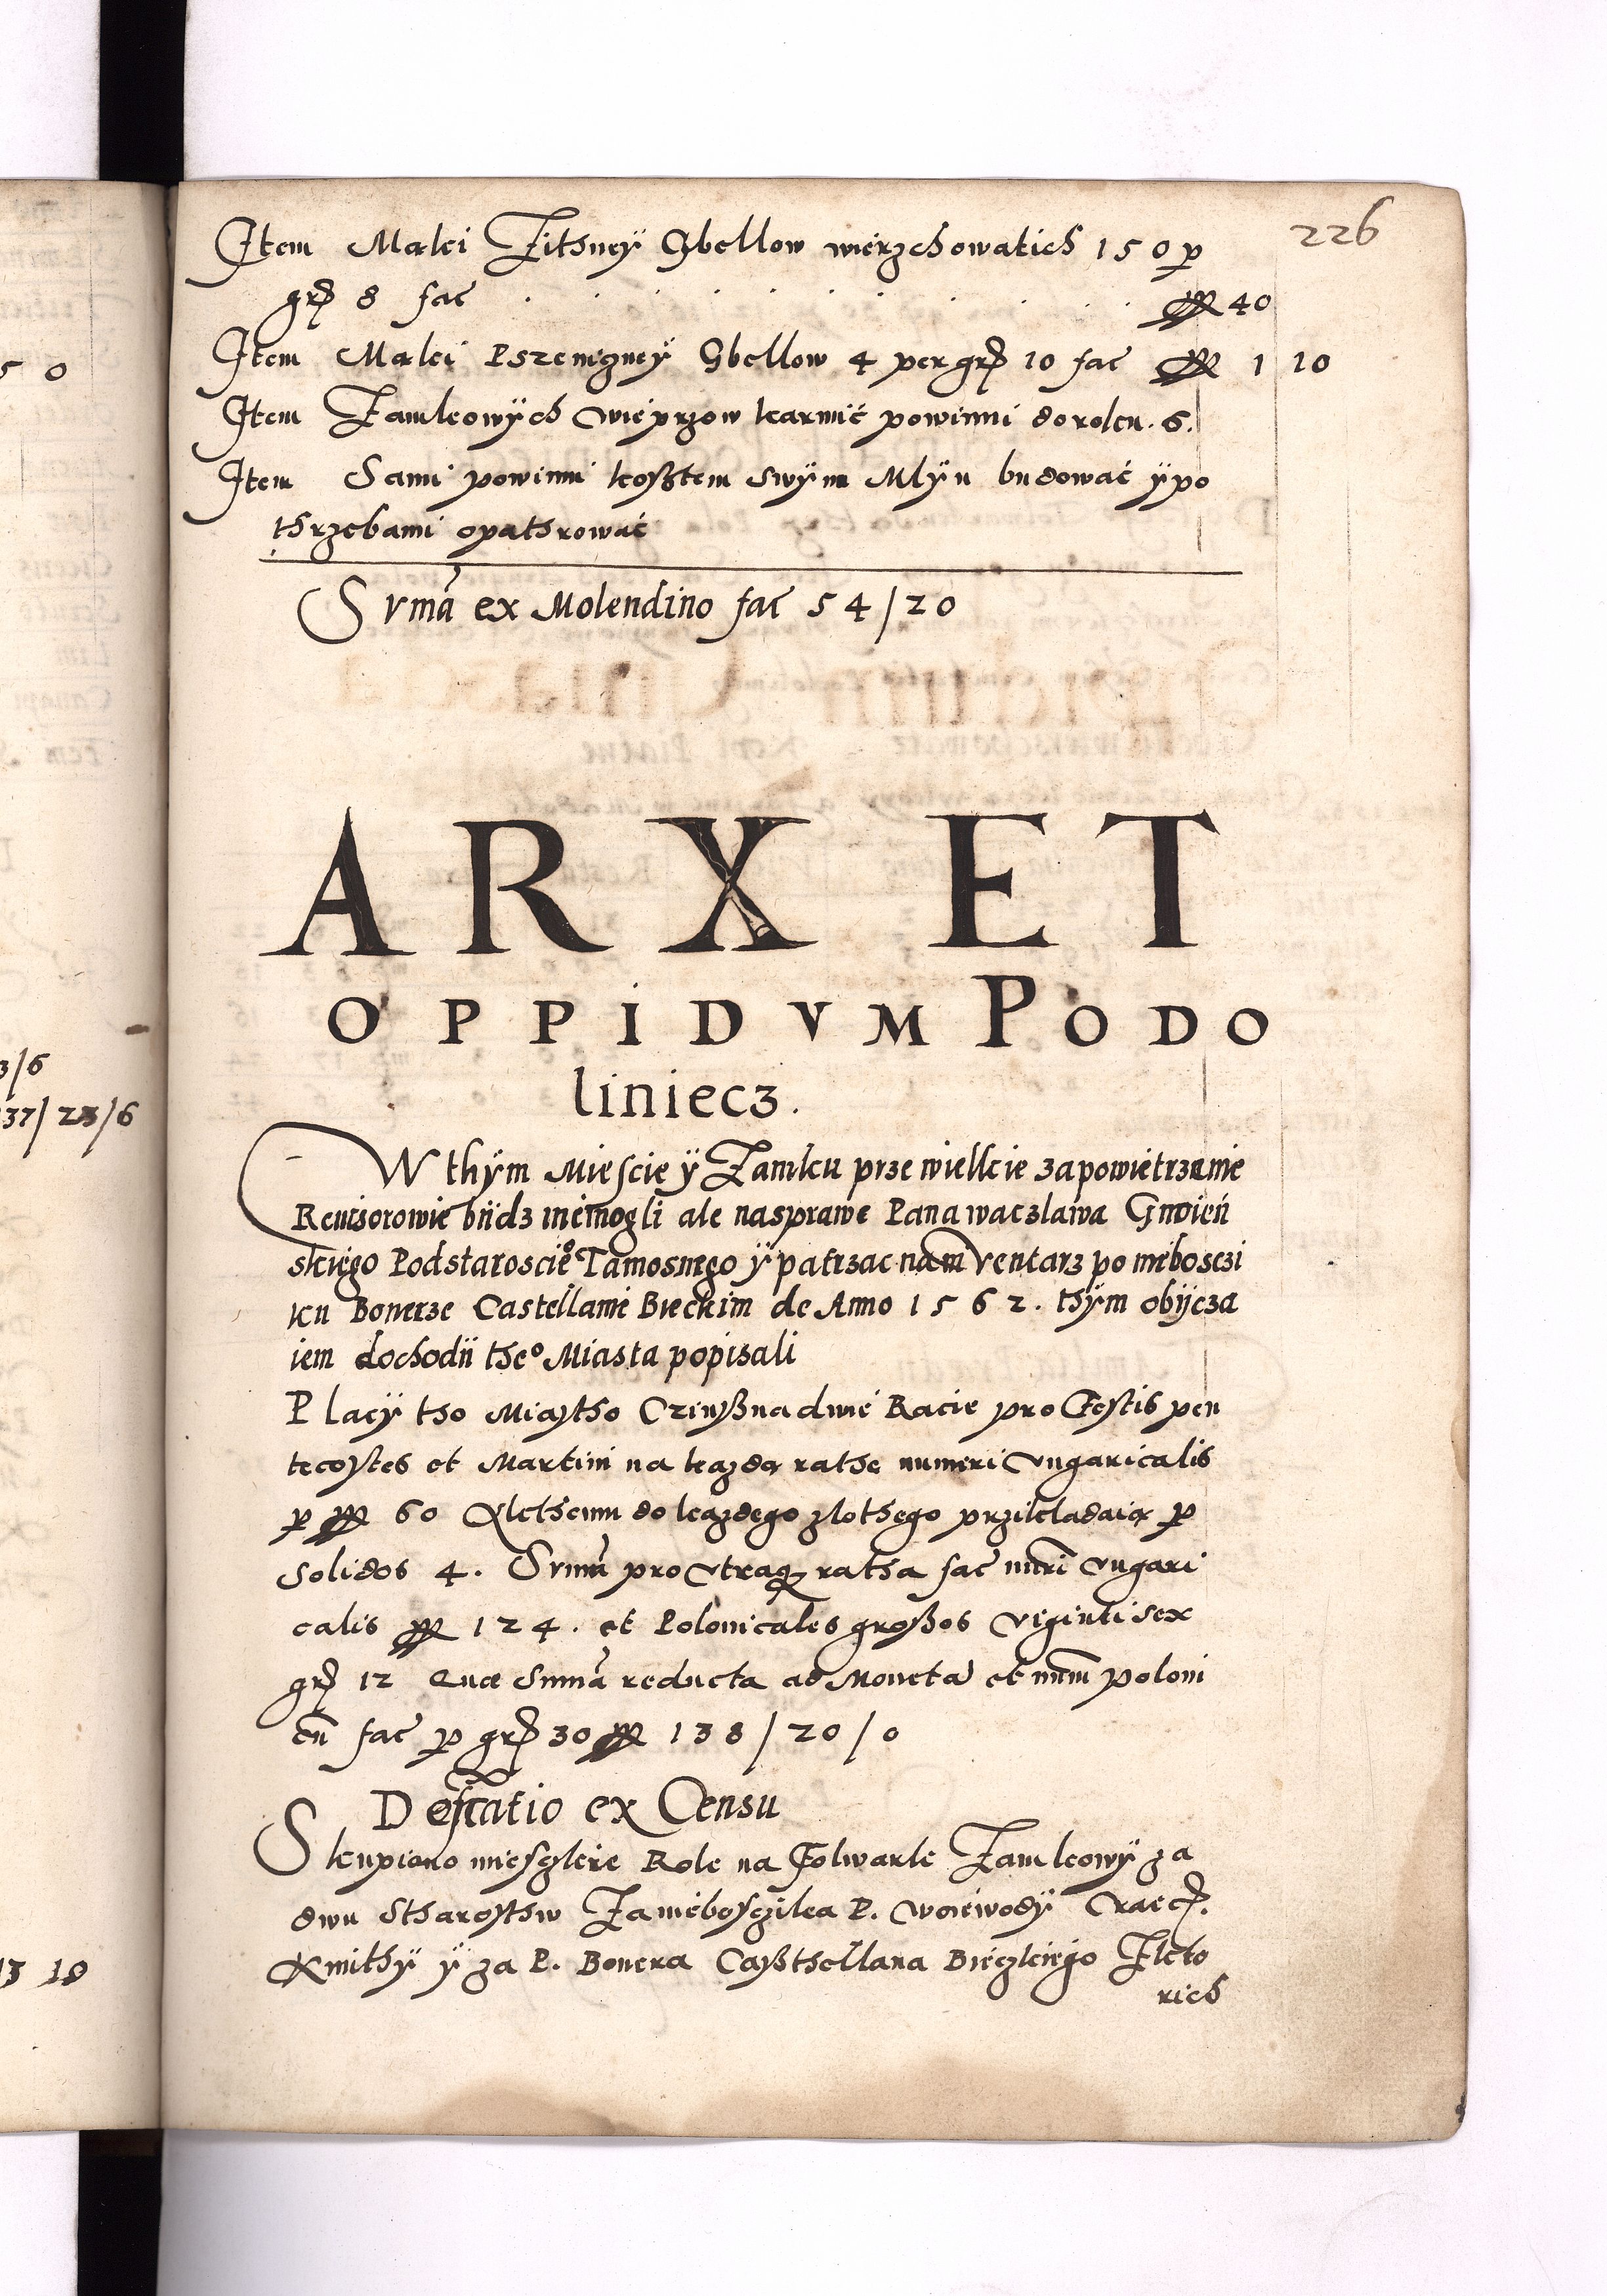 226
Item Mąki Zithney Gbellow wierzchowatich 150 p
gr 8 fac 40
Item Mąki Pszenigney Gbellow 4 per gr 10 fac 1 10
Item Zamkowych wieprzow karmić powinni do roku. 6.
Item Sami powinni kosztem swym Mlyn budować y po
thrzebami opathrować
Sυmā ex Molendino fac 54/20
ARX ET
OPPIDVM PODO
liniecz.
W thym Mieście ÿ Zamku prze wielkie zapowietrzenie
Revisorowie bydz niemogli ale na sprawe Pana waczlawa Gnoień
skiego Podstaroscieo Tamosnego ÿ patrzac na inventarz po nieboszczi
ku Bonerze Castellanie Bieckim de Anno 1562. thÿm obÿcza
iem dochodÿ theo Miasta popisali
Placy tho Miastho Czinß na dwie Racie pro Festis pen
tecostes et Martini na każdą rathe numeri Ungaricalis
p 60 Kthemu do każdego zlothego przikladaią p
Solidos 4. Summā pro Utraq ratha fac nūri Ungari
calis 124. et Polonicales großos Viginti sex
gr 12 Quæ Summā reducta ad Moneta et nūm poloni
cū fac p gr 30 138/20/0
Defalcatio ex Censu
Skupiono mieszkie Role na Folwark Zamkowÿ za
dwu Starosthw Za nieboszczika P. Woiewodÿ Crac.
Kmithÿ ÿ za P. Bonera Caßthellana Bieczkiego Z kto
rich
5 0
3/6
37/23/6
13 18